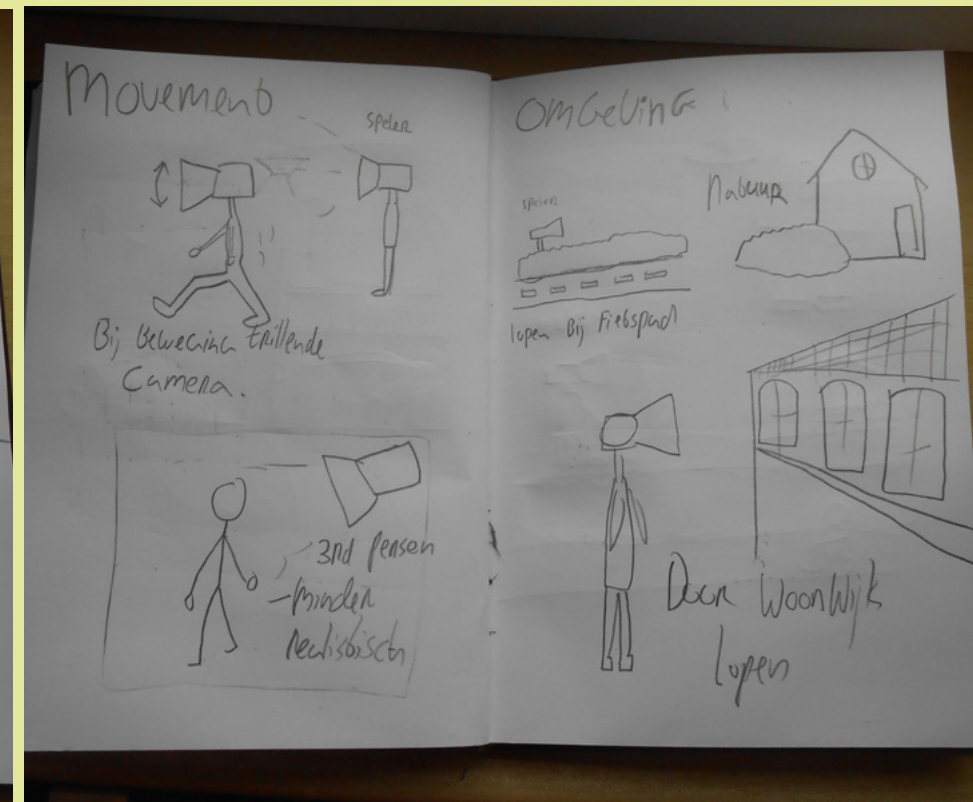 Movement
speler
Bij Beweging trillende
Camera.
3rd person
-minder
realistisch
OMGEVING
speler
Natuur
lopen Bij Fietspad
Door Woonwijk
lopen